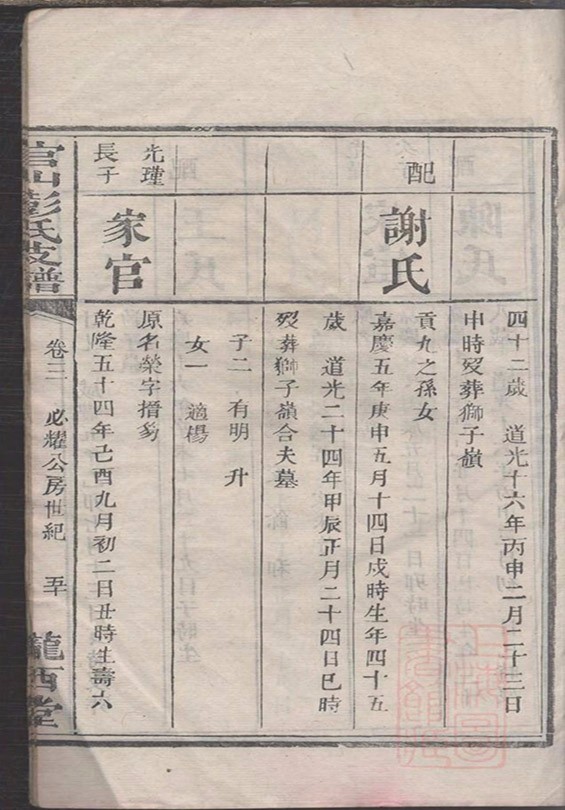 四十二歲 道光十六年丙申二月二十三日
申時歿葬獅子嶺
配
謝氏
貢九之孫女
嘉慶五年庚申五月十四日戌時生年四十五
歲 道光二十四年甲辰正月二十四日巳時
歿葬獅子嶺合夫墓
子二 有明 升
女一 適楊
光瑾
長子
家官
原名榮字搢芻
乾隆五十四年己酉九月初二日丑時生壽六
官山彭氏支譜
卷三 必耀公房世紀 五十
隴西堂